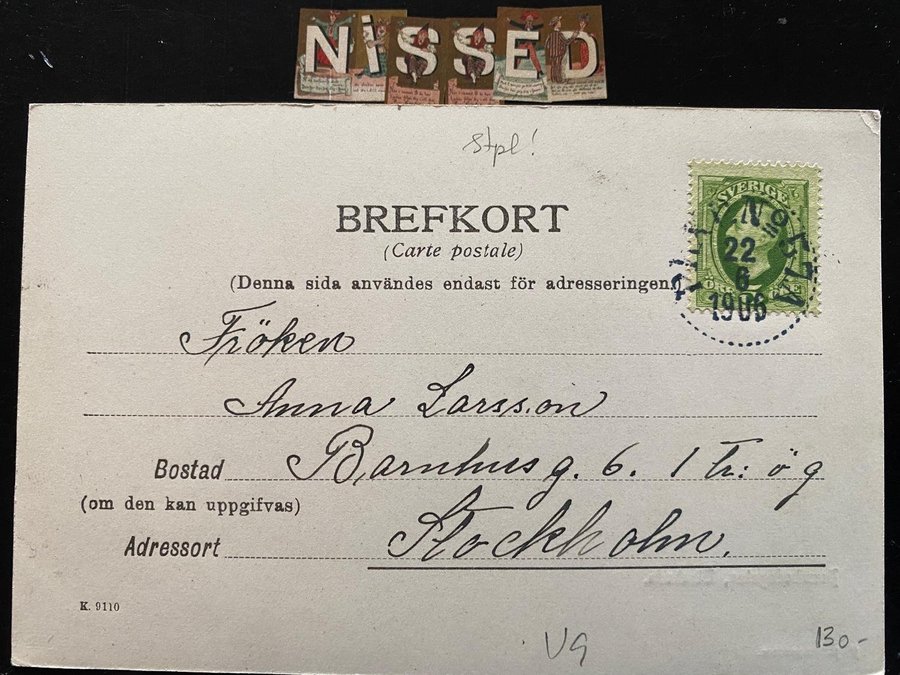 NISSED
Stpl!
BREFKORT
(Carte postale)
(Denna sida användes endast för adresseringen.)
SVERIGE
No 57A
22
6
1906
Fröken
Anna Larsson
Bostad Barnhusg. 6. 1 tr: ö g
(om den kan uppgifvas)
Adressort Stockholm.
K. 9110
VG
130-